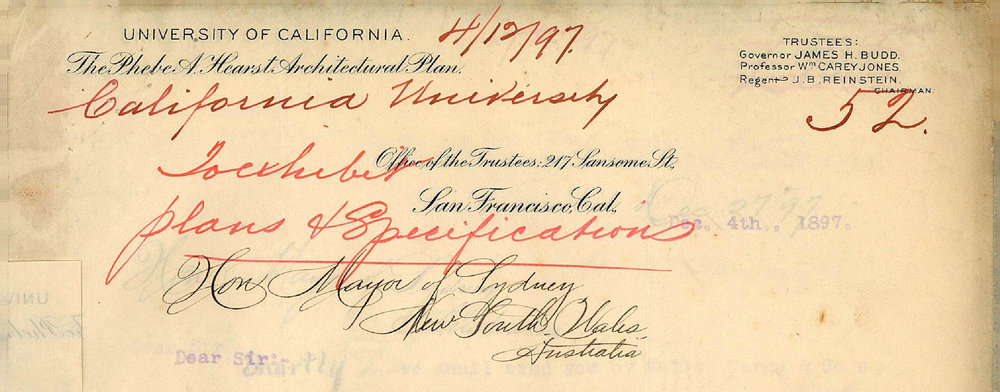 UNIVERSITY OF CALIFORNIA.
4/12/97.
The Phebe A. Hearst Architectural Plan.
TRUSTEES:
Governor JAMES H. BUDD.
Professor Wm CAREY JONES.
Regent J.B. REINSTEIN.
CHAIRMAN.
California University
52.
Office of the Trustees; 217 Sansome St,
To exhibit
San Francisco, Cal.
plans & Specifications
Dec. 4th. 1897.
Hon Mayor of Sydney
New South Wales
Australia
Dear Sir:-